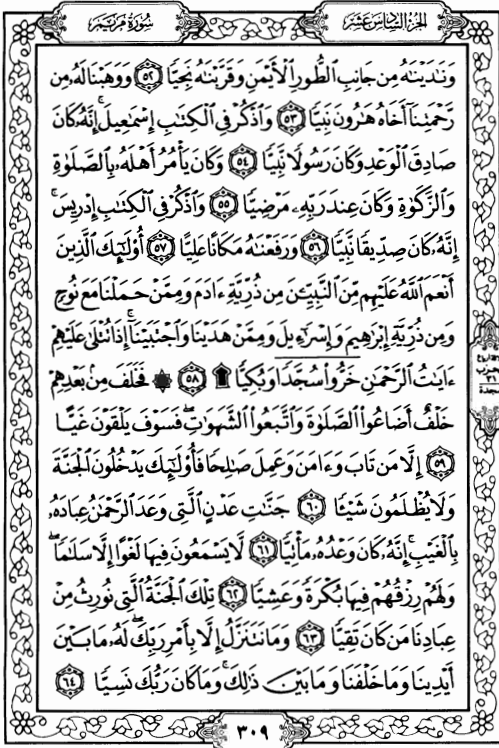 سورة مريم
الجزء السادس عشر
وَنَٰدَيْنَٰهُ مِن جَانِبِ ٱلطُّورِ ٱلْأَيْمَنِ وَقَرَّبْنَٰهُ نَجِيًّا ٥٢ وَوَهَبْنَا لَهُۥ مِن
رَّحْمَتِنَآ أَخَاهُ هَٰرُونَ نَبِيًّا ٥٣ وَٱذْكُرْ فِى ٱلْكِتَٰبِ إِسْمَٰعِيلَ ۚ إِنَّهُۥ كَانَ
صَادِقَ ٱلْوَعْدِ وَكَانَ رَسُولًا نَّبِيًّا ٥٤ وَكَانَ يَأْمُرُ أَهْلَهُۥ بِٱلصَّلَوٰةِ
وَٱلزَّكَوٰةِ وَكَانَ عِندَ رَبِّهِۦ مَرْضِيًّا ٥٥ وَٱذْكُرْ فِى ٱلْكِتَٰبِ إِدْرِيسَ ۚ
إِنَّهُۥ كَانَ صِدِّيقًا نَّبِيًّا ٥٦ وَرَفَعْنَٰهُ مَكَانًا عَلِيًّا ٥٧ أُو۟لَٰٓئِكَ ٱلَّذِينَ
أَنْعَمَ ٱللَّهُ عَلَيْهِم مِّنَ ٱلنَّبِيِّـۧنَ مِن ذُرِّيَّةِ ءَادَمَ وَمِمَّنْ حَمَلْنَا مَعَ نُوحٍ
وَمِن ذُرِّيَّةِ إِبْرَٰهِيمَ وَإِسْرَٰٓءِيلَ وَمِمَّنْ هَدَيْنَا وَٱجْتَبَيْنَآ ۚ إِذَا تُتْلَىٰ عَلَيْهِمْ
ءَايَٰتُ ٱلرَّحْمَٰنِ خَرُّوا۟ سُجَّدًا وَبُكِيًّا ۩ ٥٨ ۞ فَخَلَفَ مِنۢ بَعْدِهِمْ
خَلْفٌ أَضَاعُوا۟ ٱلصَّلَوٰةَ وَٱتَّبَعُوا۟ ٱلشَّهَوَٰتِ ۖ فَسَوْفَ يَلْقَوْنَ غَيًّا
٥٩ إِلَّا مَن تَابَ وَءَامَنَ وَعَمِلَ صَٰلِحًا فَأُو۟لَٰٓئِكَ يَدْخُلُونَ ٱلْجَنَّةَ
وَلَا يُظْلَمُونَ شَيْـًٔا ٦٠ جَنَّٰتِ عَدْنٍ ٱلَّتِى وَعَدَ ٱلرَّحْمَٰنُ عِبَادَهُۥ
بِٱلْغَيْبِ ۚ إِنَّهُۥ كَانَ وَعْدُهُۥ مَأْتِيًّا ٦١ لَّا يَسْمَعُونَ فِيهَا لَغْوًا إِلَّا سَلَٰمًا ۖ
وَلَهُمْ رِزْقُهُمْ فِيهَا بُكْرَةً وَعَشِيًّا ٦٢ تِلْكَ ٱلْجَنَّةُ ٱلَّتِى نُورِثُ مِنْ
عِبَادِنَا مَن كَانَ تَقِيًّا ٦٣ وَمَا نَتَنَزَّلُ إِلَّا بِأَمْرِ رَبِّكَ ۖ لَهُۥ مَا بَيْنَ
أَيْدِينَا وَمَا خَلْفَنَا وَمَا بَيْنَ ذَٰلِكَ ۚ وَمَا كَانَ رَبُّكَ نَسِيًّا ٦٤
٣٠٩